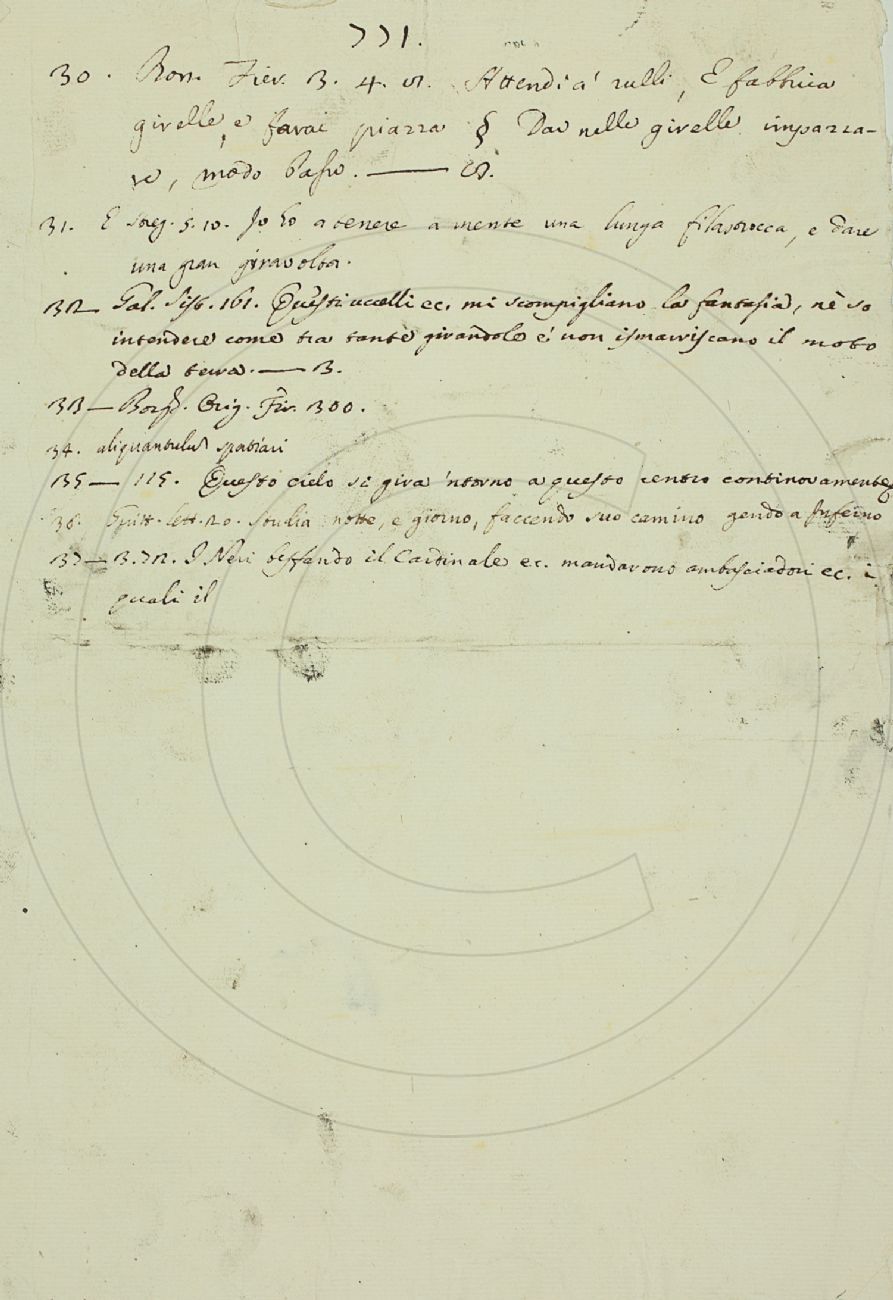 771.
30. Bon. Fier. 3. 4. 2. Attendi a' rulli, E fabbrica
girelle, e farai piazza § Dar nelle girelle impazza-
re, modo basso. —— 2.
31. E 5. 10. Io ho a tenere a mente una lunga filastrocca, e dare
una gran giravolta.
32 — Gal. Sist. 161. Questi uccelli ec. mi scompigliano la fantasia, nè so
intendere come tra tante girandole e' non ismarriscano il moto
della terra. —— 3.
33 — Borgh. Orig. Fir. 300.
34. aliquantulum spatiari
35 — 115. Questo cielo si gira 'ntorno a questo centro continovamente
36. Guitt. lett. 20. notte, e giorno, faccendo suo camino gendo a Inferno
37 — 3. 72. I Neri beffendo il Cardinale ec. mandarono ambasciadori ec. i
quali il